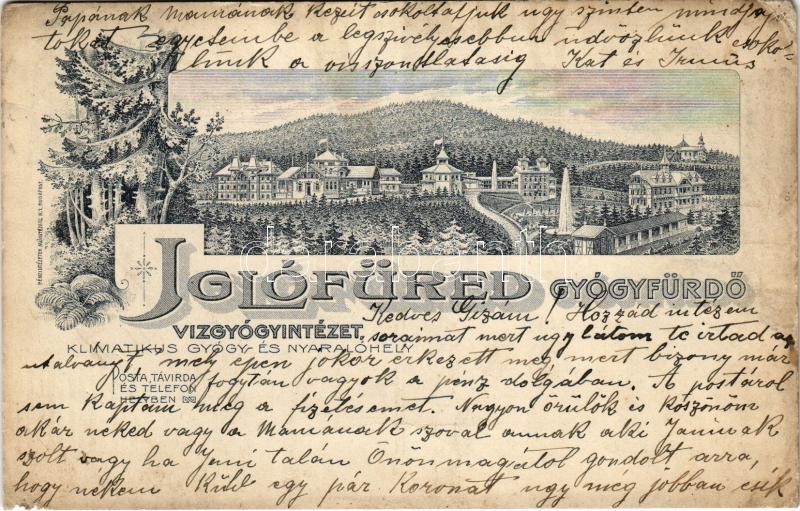 Papának Mamának kezeit csokoltatjuk ugy szinten mindja-
tokat egyetembe a legszivelyesebben üdvözlünk csoko-
lunk a viszontlatasig Kat és Irmus
darabanth
RÉNYI
IGLÓFÜRED GYÓGYFÜRDŐ
VIZGYÓGYINTÉZET,
KLIMATIKUS GYÓGY- ÉS NYARALÓHELY
POSTA, TÁVIRDA
ÉS TELEFON
HELYBEN
Kedves Gizám! Hozzád intézem
soraimat mert ugy látom te irtad az
utalványt, mely épen jokor erkezett meg mert bizony már
fogytán vagyok a pénz dolgában. A postárol
sem kaptam meg a fizetésemet. Nagyon örülök és köszönöm
akár neked vagy a Mamanak szoval annak aki Janinak
szolt vagy ha Jani talán Önönmagátol gondolt arra,
hogy nekem küld egy pár Koronát ugy meg jobban esik